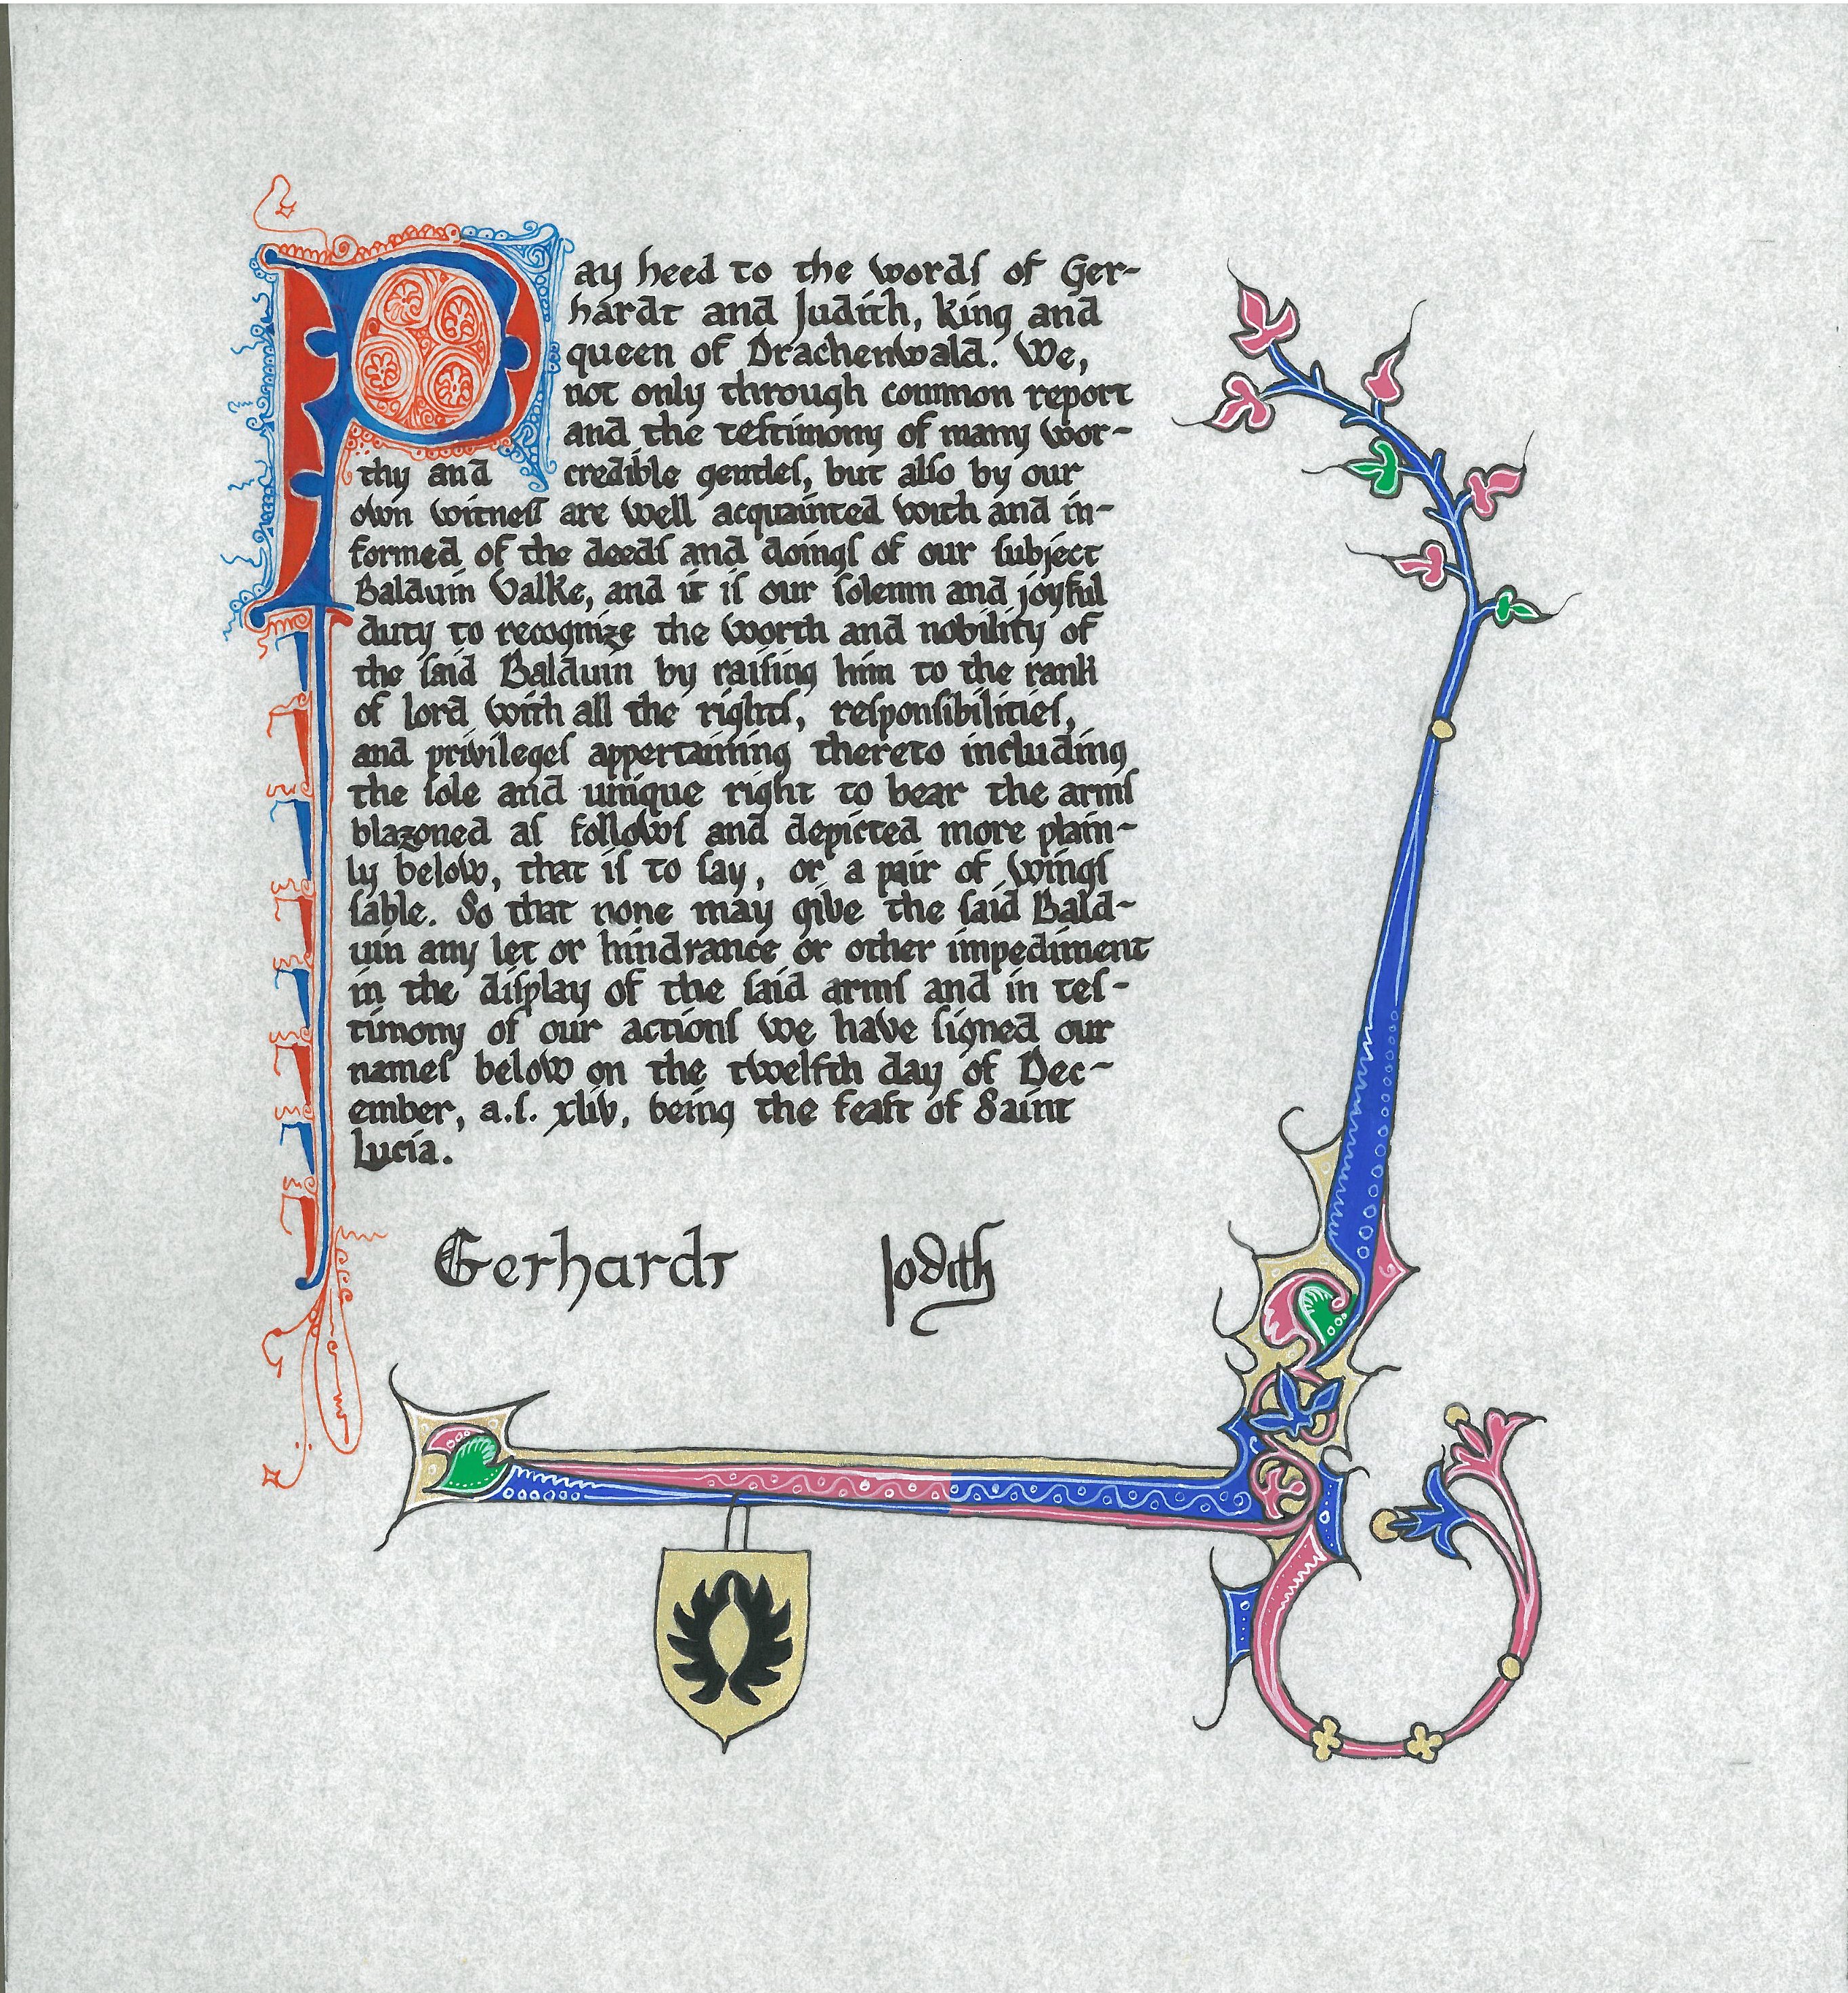 Pay heed to the wordſ of Ger-
hardt and Judith, King and
queen of Drachenwald. We,
not only through common report
and the teſtimony of many wor-
thy and credible gentleſ, but alſo by our
own witneſſ are well acquainted with and in-
formed of the deedſ and doingſ of our ſubject
Balduin Valke, and it iſ our ſolemn and joyful
duty to recognize the worth and nobility of
the ſaid Balduin by raiſing him to the rank
of lord with all the rightſ, reſponſibilitieſ,
and privilegeſ appertaining thereto including
the ſole and unique right to bear the armſ
blazoned aſ followſ and depicted more plain-
ly below, that iſ to ſay, or a pair of wingſ
ſable. So that none may give the ſaid Bald-
uin any let or hindrance or other impediment
in the diſplay of the ſaid armſ and in teſ-
timony of our actionſ we have ſigned our
nameſ below on the twelfth day of Dec-
ember, a.ſ. xliv, being the feaſt of Saint
Lucia.
Gerhardt Judith